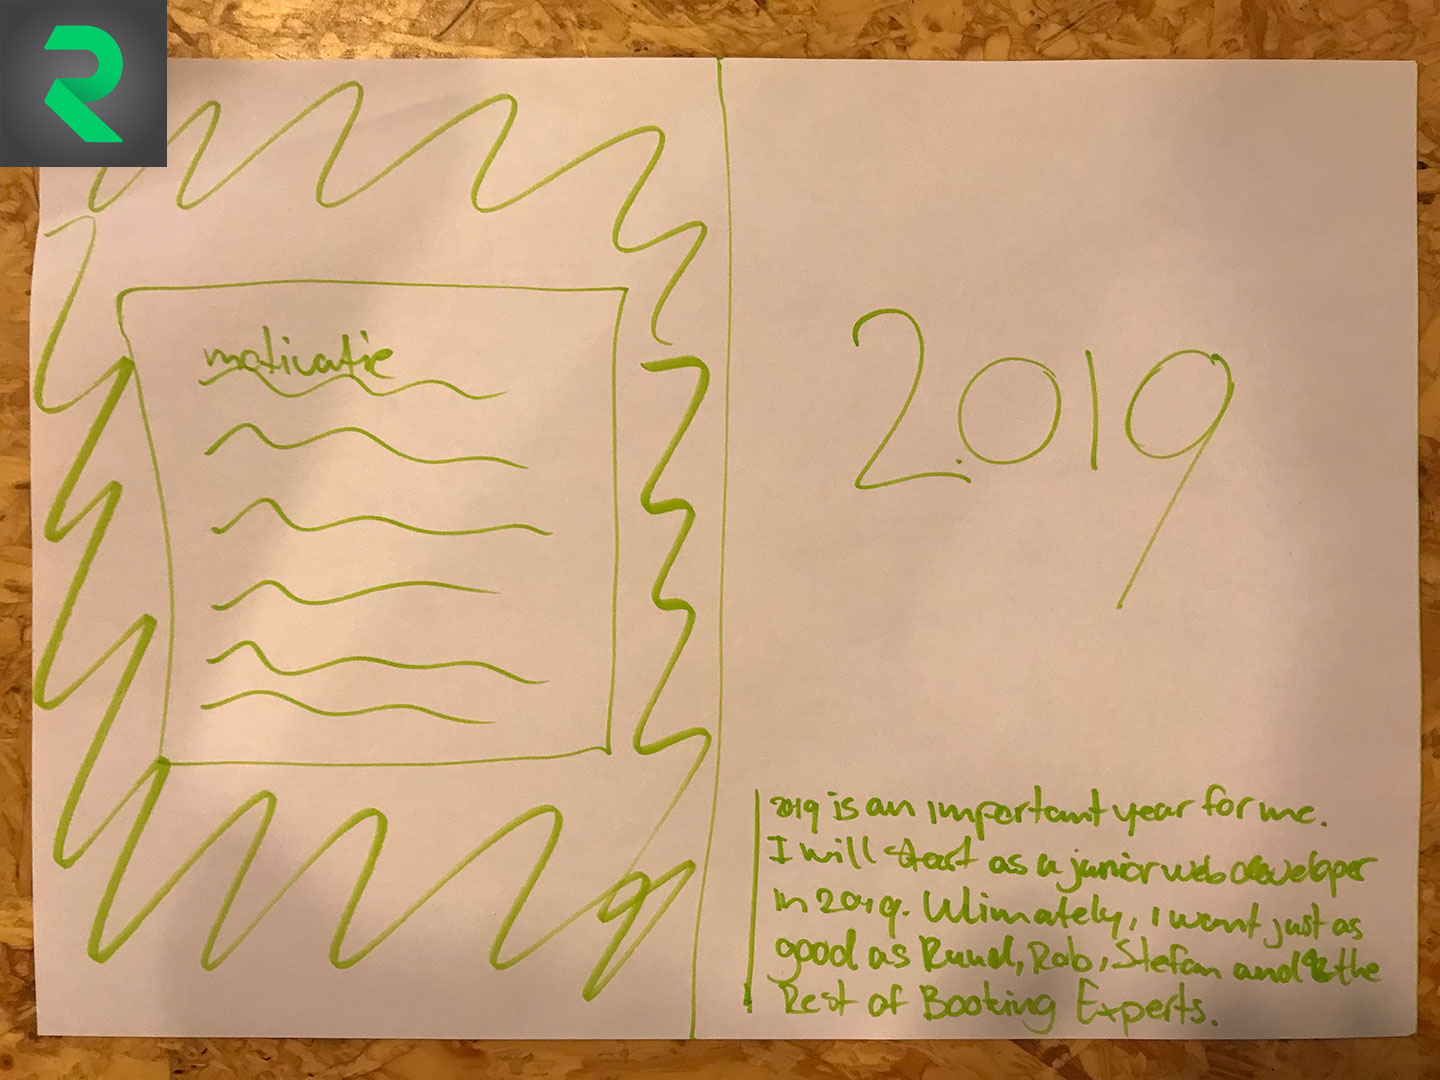 motivatie
2019
2019 is an important year for me.
I will start as a junior web developer
in 2019. Ulimately, I want just as
good as Ruud, Rob, Stefan and the
Rest of Booking Experts.